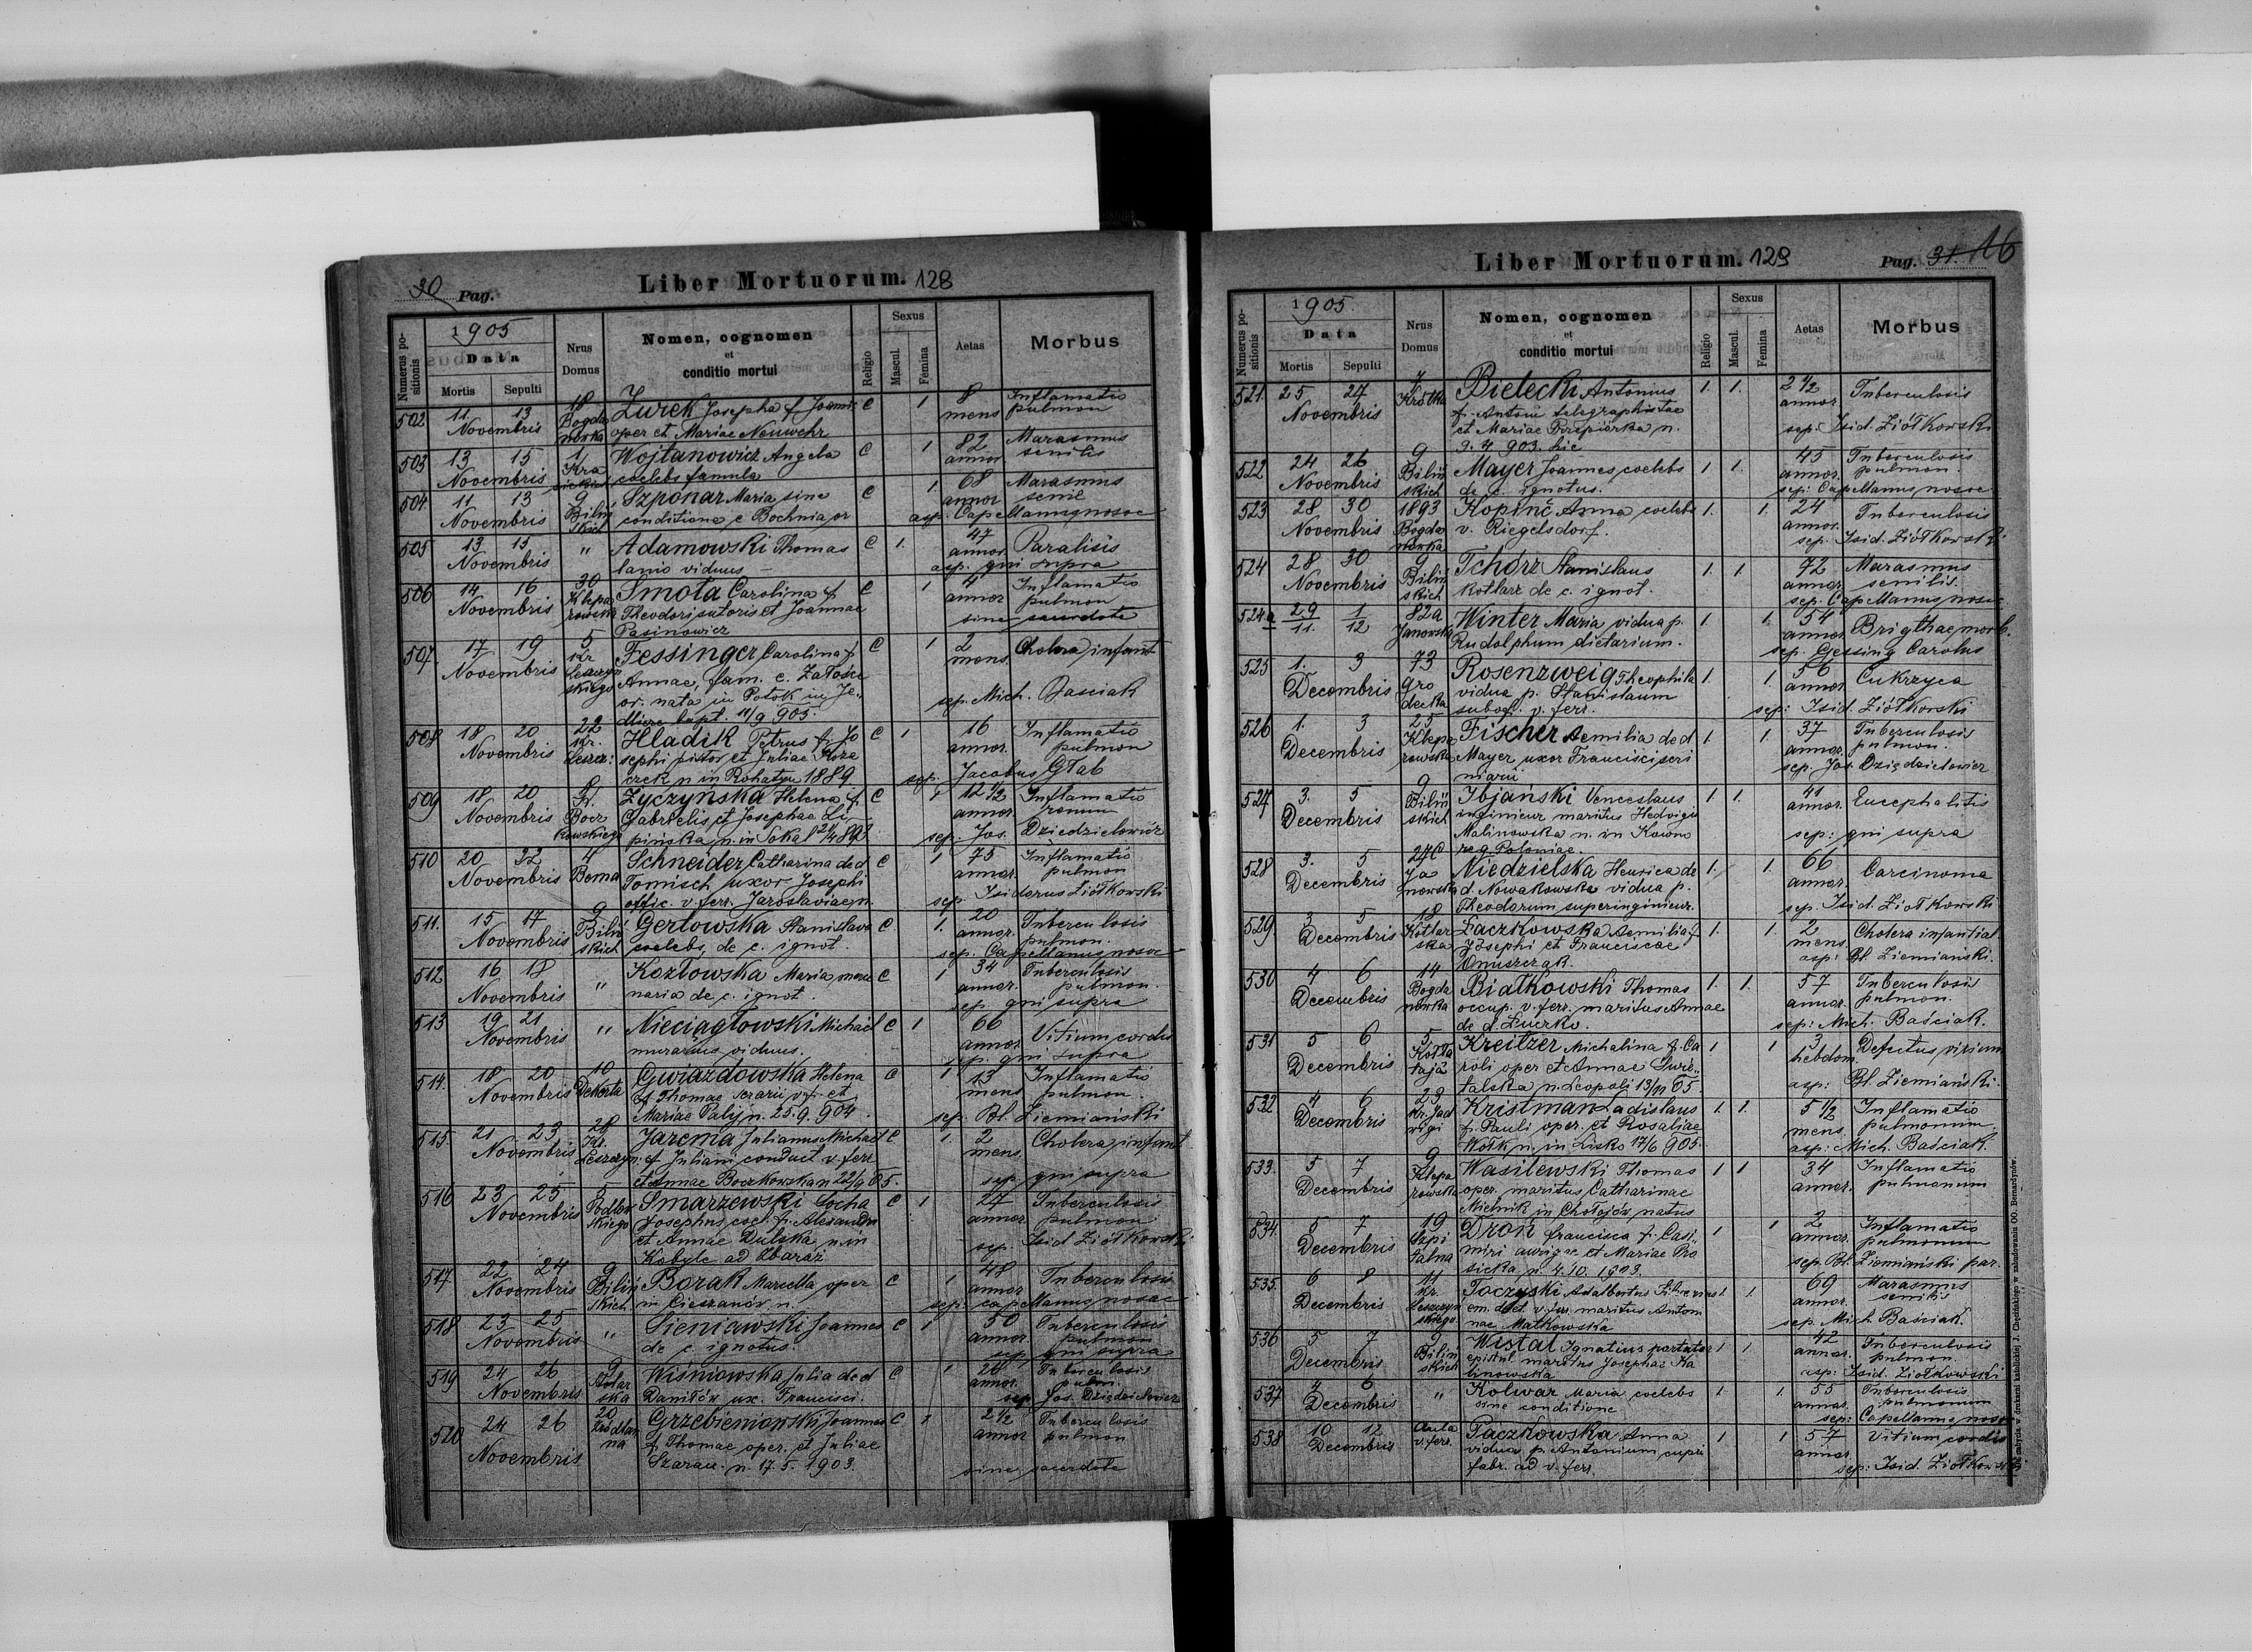 30 Pag.
Liber Mortuorum. 128
Numerus positionis
1905
Data
Mortis Sepulti
Nrus Domus
Nomen, cognomen
et
conditio mortui
Religio
Sexus
Mascul. Femina
Aetas
Morbus
502 11 13 Novembris 18 Bogdanówka
Żurek Josepha f. Joannis C 1 8 mens Inflamatio pulmon
oper et Mariae Neuwehr
503 13 15 Novembris 1
Wojtanowicz Angela C 1 82 annor Marasmus senilis
coelebs famula
504 11 13 Novembris 9 Bilińskich
Szponar Maria sine C 1 68 annor Marasmus senil
conditione e Bochnia or
asp. Capellanus nosoc
505 13 15 Novembris "
Adamowski Thomas C 1. 47 annor Paralisis
lanio viduus –
asp. qui supra
506 14 16 Novembris 30 Kleparowska
Smota Carolina f. C 1 4 annor Inflamatio pulmon
Theodori sutoris et Joannae
Pasinowicz
sine sacerdote
507 17 19 Novembris 5 Kr. Leszczyńskiego
Fessinger Carolina f. C 1 2 mens. Cholera infant
Annae, fam. e. Załośce
or. nata in Potok in Je-
bapt. 11/9 905.
sep. Mich. Baściak
508 18 20 Novembris 22 Kr. Leszcz:
Hladik Petrus f. Jo C 1 16 annor. Inflamatio pulmon
sephi pistor et Juliae Kora
czek n in Rohatyn 1889.
sep. Jacobus Głab
509 18 20 Novembris 8 Fr. Boczkowskiego
Zyczyńska Helena f. C 1 12 1/2 annor Inflamatio renum
Gabrielis et Josephae Li-
pińska, n. in Sokal
sep. Jos. Dziedzielewicz
510 20 22 Novembris 4 Bema
Schneider Catharina de d C 1 75 annor. Inflamatio pulmon
Tomisch uxor Josephi
offic. v. ferr. Jaroslaviae n.
sep. Isidorus Ziółkowski
511. 15 17 Novembris 9 Bilińskich
Gertowska Stanislava C. 1. 20 annor. Tuberculosis pulmon.
coelebs, de c. ignot.
sep. Capellanus nosoc
512 16 18 Novembris "
Kozłowska Maria merce C 1 34 annor. Tuberculosis pulmon.
naria de c. ignot.
sep qui supra
513 19 21 Novembris "
Nieciągłowski Michael C 1 66 annor. Vitium cordis
murarius viduus.
sep. qui supra
514. 18 20 Novembris 10 Dekerta
Gwiazdowska Helena C 1 13 mens Inflamatio pulmon.
f. Thomae v. f. et
Mariae Palij n. 25. 9. 904.
sep. Bl. Ziemiański
515. 21 23 Novembris 28 Kr. Leszczyn:
Jarema Julianus Michael C 1. 2 mens Cholera infant.
f. Juliani conduct v. ferr
et Annae Boczkowska n 22/9 05.
sep qui supra
516 23 25 Novembris 5 Podlewskiego
Smarzewski Socha C 1 27 annor. Tuberculosis pulmon
Josephus, coel. f. Alexandri
et Annae Dulska n. in
Kobyle ad Zbaraż
sep. Isid Ziółkowski
517 22 24 Novembris 9 Bilińskich
Borak Marcella oper C 1 48 annor. Tuberculosis
in Cieszanów n.
sep: capellanus nosoc
518 23 25 Novembris "
Sieniawski Joannes C 1 50 annor. Tuberculosis pulmon
de c. ignotus.
sep. qui supra
519 24 26 Novembris 9 Kotlarska
Wiśniowska Julia de d C 1 26 annor. Tuberculosis pulm.
Daniłów ux. Francisci.
sep Jos. Dziędzielewicz
520 24 26 Novembris 20 Źródlana
Grzebieniowski Joannes C 1 2 1/2 annor Tuberculosis pulmon
f. Thomae oper. et Juliae
Szarau. n. 17. 5. 1903.
sine sacerdote
Liber Mortuorum. 129
Pag. 31. 16
Numerus positionis
1905.
Data
Mortis Sepulti
Nrus Domus
Nomen, cognomen
et
conditio mortui
Religio
Sexus
Mascul. Femina
Aetas
Morbus
521. 25 27 Novembris 7 Krótka
Bielecki Antonius 1. 1. 2 1/2 annor Tuberculosis
f. Antoni telegraphistae
et Mariae Przepiórka n.
9. 4. 903. hic
sep: Isid. Ziółkowski
522 24 26 Novembris 9 Bilińskich
Mayer Joannes coelebs 1 1. 45 annor. Tuberculosis pulmon.
de c. ignotus.
sep: Capellanus nosoc.
523 28 30 Novembris 1893 Bogdanówka
Kopinč Anna coelebs 1. 1. 24 annor. Tuberculosis
v. Riegelsdorf.
sep. Isid. Ziółkowski
524 28 30 Novembris 9 Bilińskich
Tchórz Stanislaus 1. 1 72 annor. Marasmus senilis.
kotlarz de c. ignot.
sep. Capellanus nosoc.
524a 29/11. 1/12 82a Janowska
Winter Maria vidua p. 1 1. 54 annor. Brigthae morb.
Rudolphum dietarium.
sep. Gjessing Carolus
525 1. 3 Decembris 73 Grodecka
Rosenzweig Theophila 1. 1. 56 annor. Cukrzyca
vidua p. Stanislaum
subof. v. ferr.
sep: Isid. Ziółkowski
526 1. 3 Decembris 25 Kleparowska
Fischer Aemilia de d 1 1. 37 annor. Tuberculosis pulmon.
Mayer uxor Francisci scri
niarii
sep. Jos. Dziędzielewicz
527 3. 5 Decembris 9 Bilińskich
Ibjański Venceslaus 1 1. 41 annor. Encephalitis
inginieur maritus Hedvigis
Malinowska n. in Kowno
reg. Poloniae.
sep: qui supra
528 3. 5 Decembris 27C Janowska
Niedzielska Henrica de 1. 1. 66 annor. Carcinoma
d. Nowakowska vidua p.
Theodorum superinginieur.
sep. Isid. Ziółkowski
529 3 5 Decembris 18 Kotlarska
Łaczkowska Aemilia f. 1. 1. 2 mens. Cholera infantial
Josephi et Franciscae
Onuszczak.
asp: Bl. Ziemiański.
530 4 6 Decembris 14 Bogdanówka
Białkowski Thomas 1. 1. 57 annor. Tuberculosis pulmon.
occup. v. ferr. maritus Annae
de d. Łuczko.
sep: Mich. Baściak.
531 5 6 Decembris 5 Kołłątaja
Kreitzer Michalina f. Ca 1 1 3 hebdom. Defectus virium
roli oper et Annae Świe-
talska n. Leopoli 13/11 05.
asp: Bl. Ziemiański.
532 4 6 Decembris 29 Kr. Jadwigi
Kristman Ladislaus 1. 1. 5 1/2 mens. Inflamatio pulmonum.
f. Pauli oper. et Rosaliae
Wołk n. in Lisko 17/6 905.
asp: Mich. Baściak.
533. 5 7 Decembris 9 Kleparowska
Wasilewski Thomas 1 1 34 annor. Inflamatio pulmonum
oper. maritus Catharinae
Mielnik in Chołojów natus
534. 5 7 Decembris 19 Szpitalna
Droń Francisca f. Casi- 1 1 2 annor. Inflamatio pulmonum
miri aurigae et Mariae Pro
sicka n. 4. 10. 1903.
sep. Bl. Ziemiański par.
535. 6 8 Decembris 11 Kr. Leszczyńskiego
Toczyski Adalbertus 1. 1. 69 annor. Marasmus senilis
em. v. ferr. maritus Anton
nae Małkowska
sep. Mich. Baściak.
536 5 7 Decembris 9 Bilińskich
Wistal Ignatius portator 1 1 42 annor. Tuberculosis pulmon.
epistul maritus Josephae Ka
linowska
asp: Isid. Ziółkowski
537 4 6 Decembris "
Kolwar Maria coelebs 1 1. 55 annor. Tuberculosis pulmonum
sine conditione
sep: Capellanus nosoc
538 10 12 Decembris v. ferr.
Paczkowska Anna 1 1 57 annor. Vitium cordis
vidua p. Antonium cupri
fabr. ad v. ferr.
sep: Isid. Ziółkowski
Do nabycia w drukarni katolickiej J. Chęcińskiego w zabudowaniu OO. Bernardynów.